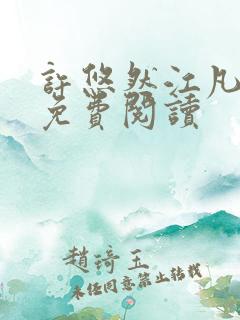 許悠然江凡
免費閱讀
趙琦玉
未任同意禁止转载